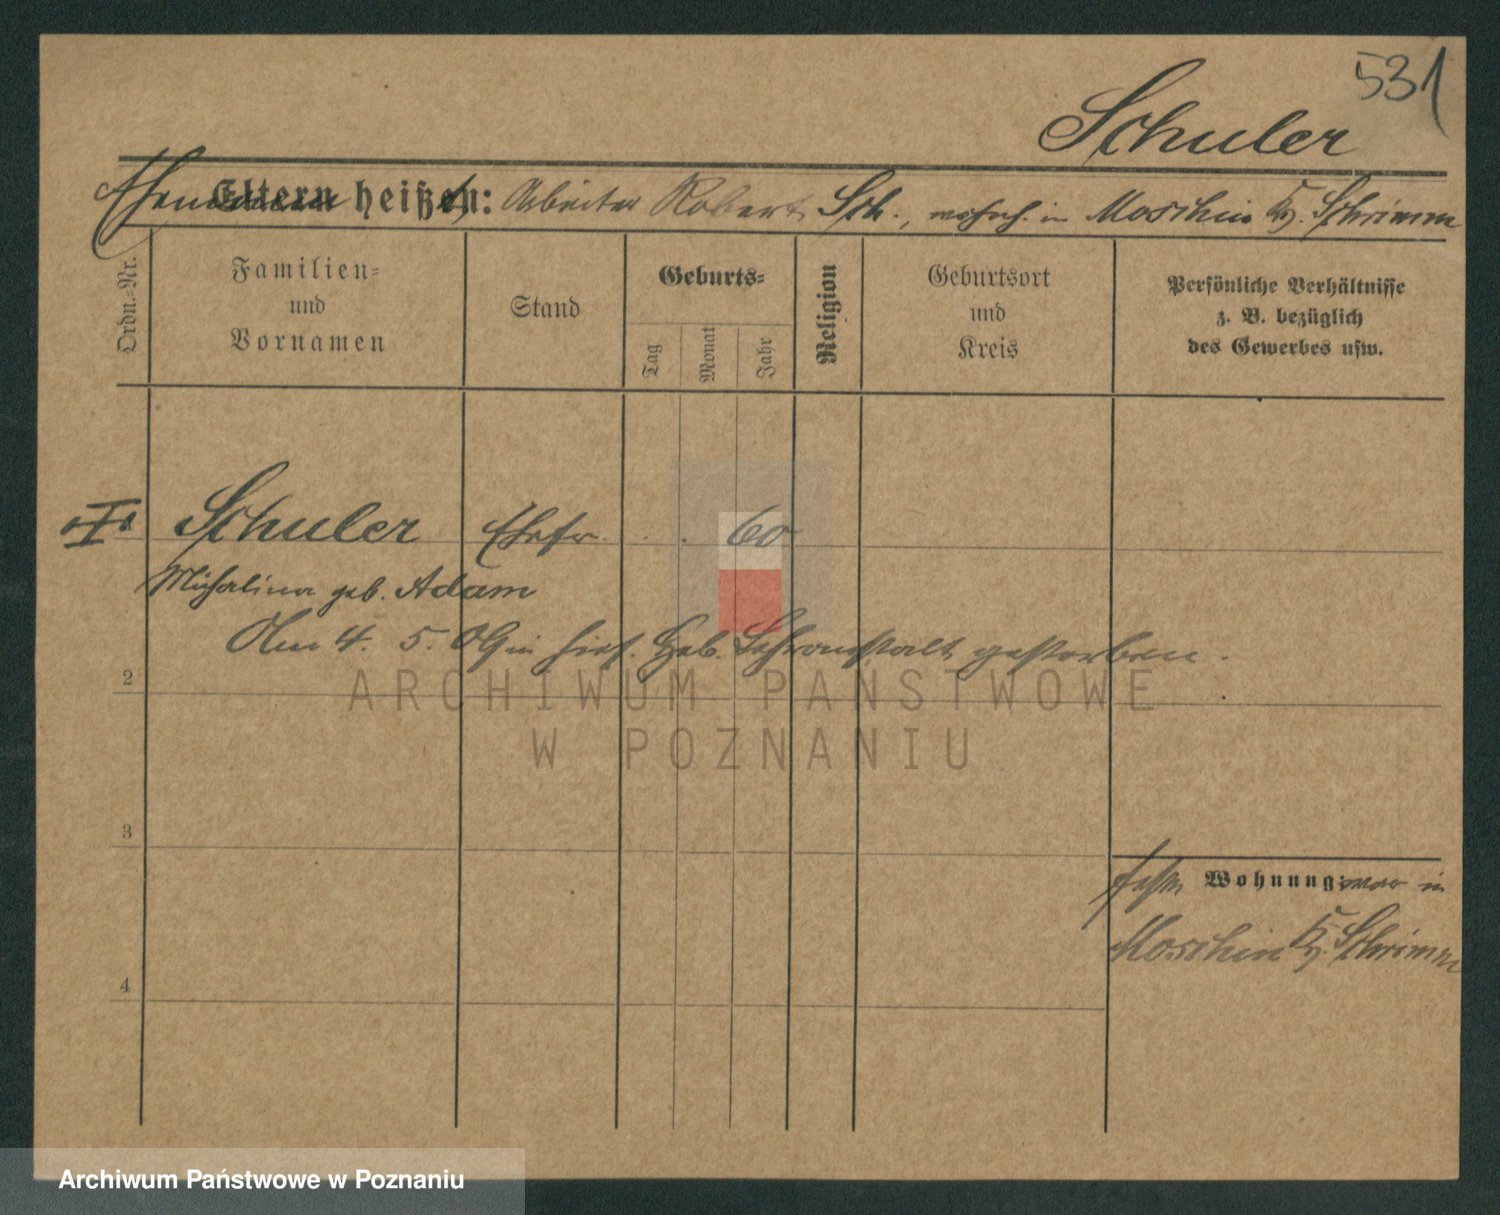 531
Schuler
Ehemann Eltern heißt: Arbeiter Robert Sch., wohnh. in Moschin Kr. Schrimm
Ordn.-Nr.
Familien-
und
Vornamen
Stand
Geburts-
Tag
Monat
Jahr
Religion
Geburtsort
und
Kreis
Persönliche Verhältnisse
z. B. bezüglich
des Gewerbes usw.
1 Schuler Ehefr. . . 60
Michalina geb. Adam
Am 4. 5. 09 in hies. Heb. Lehranstalt gestorben.
2
ARCHIWUM PAŃSTWOWE
W POZNANIU
3
Wohnung: war in
Moschin Kr. Schrimm
4
Archiwum Państwowe w Poznaniu